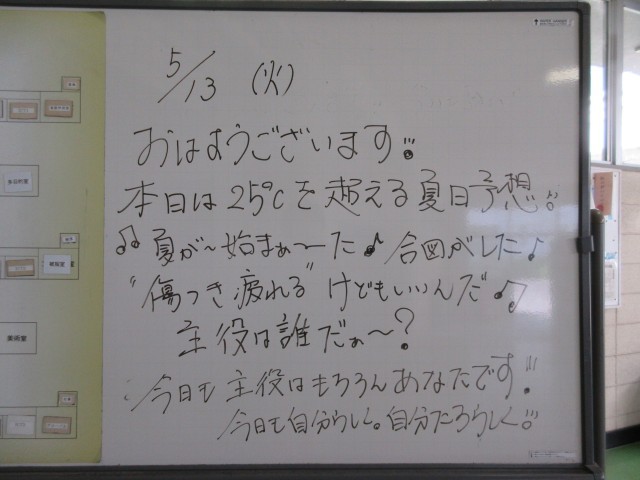 5/13 (火)
おはようございます!!
本日は25℃を超える夏日予想!!
♫夏が〜始まぁ〜った♪合図がした♪
"傷つき疲れる"けどもいいんだ♫
主役は誰だぁ〜?
今日も主役はもちろんあなたです!!!
今日も自分らしく。自分たちらしく!!!
多目的室
美術室